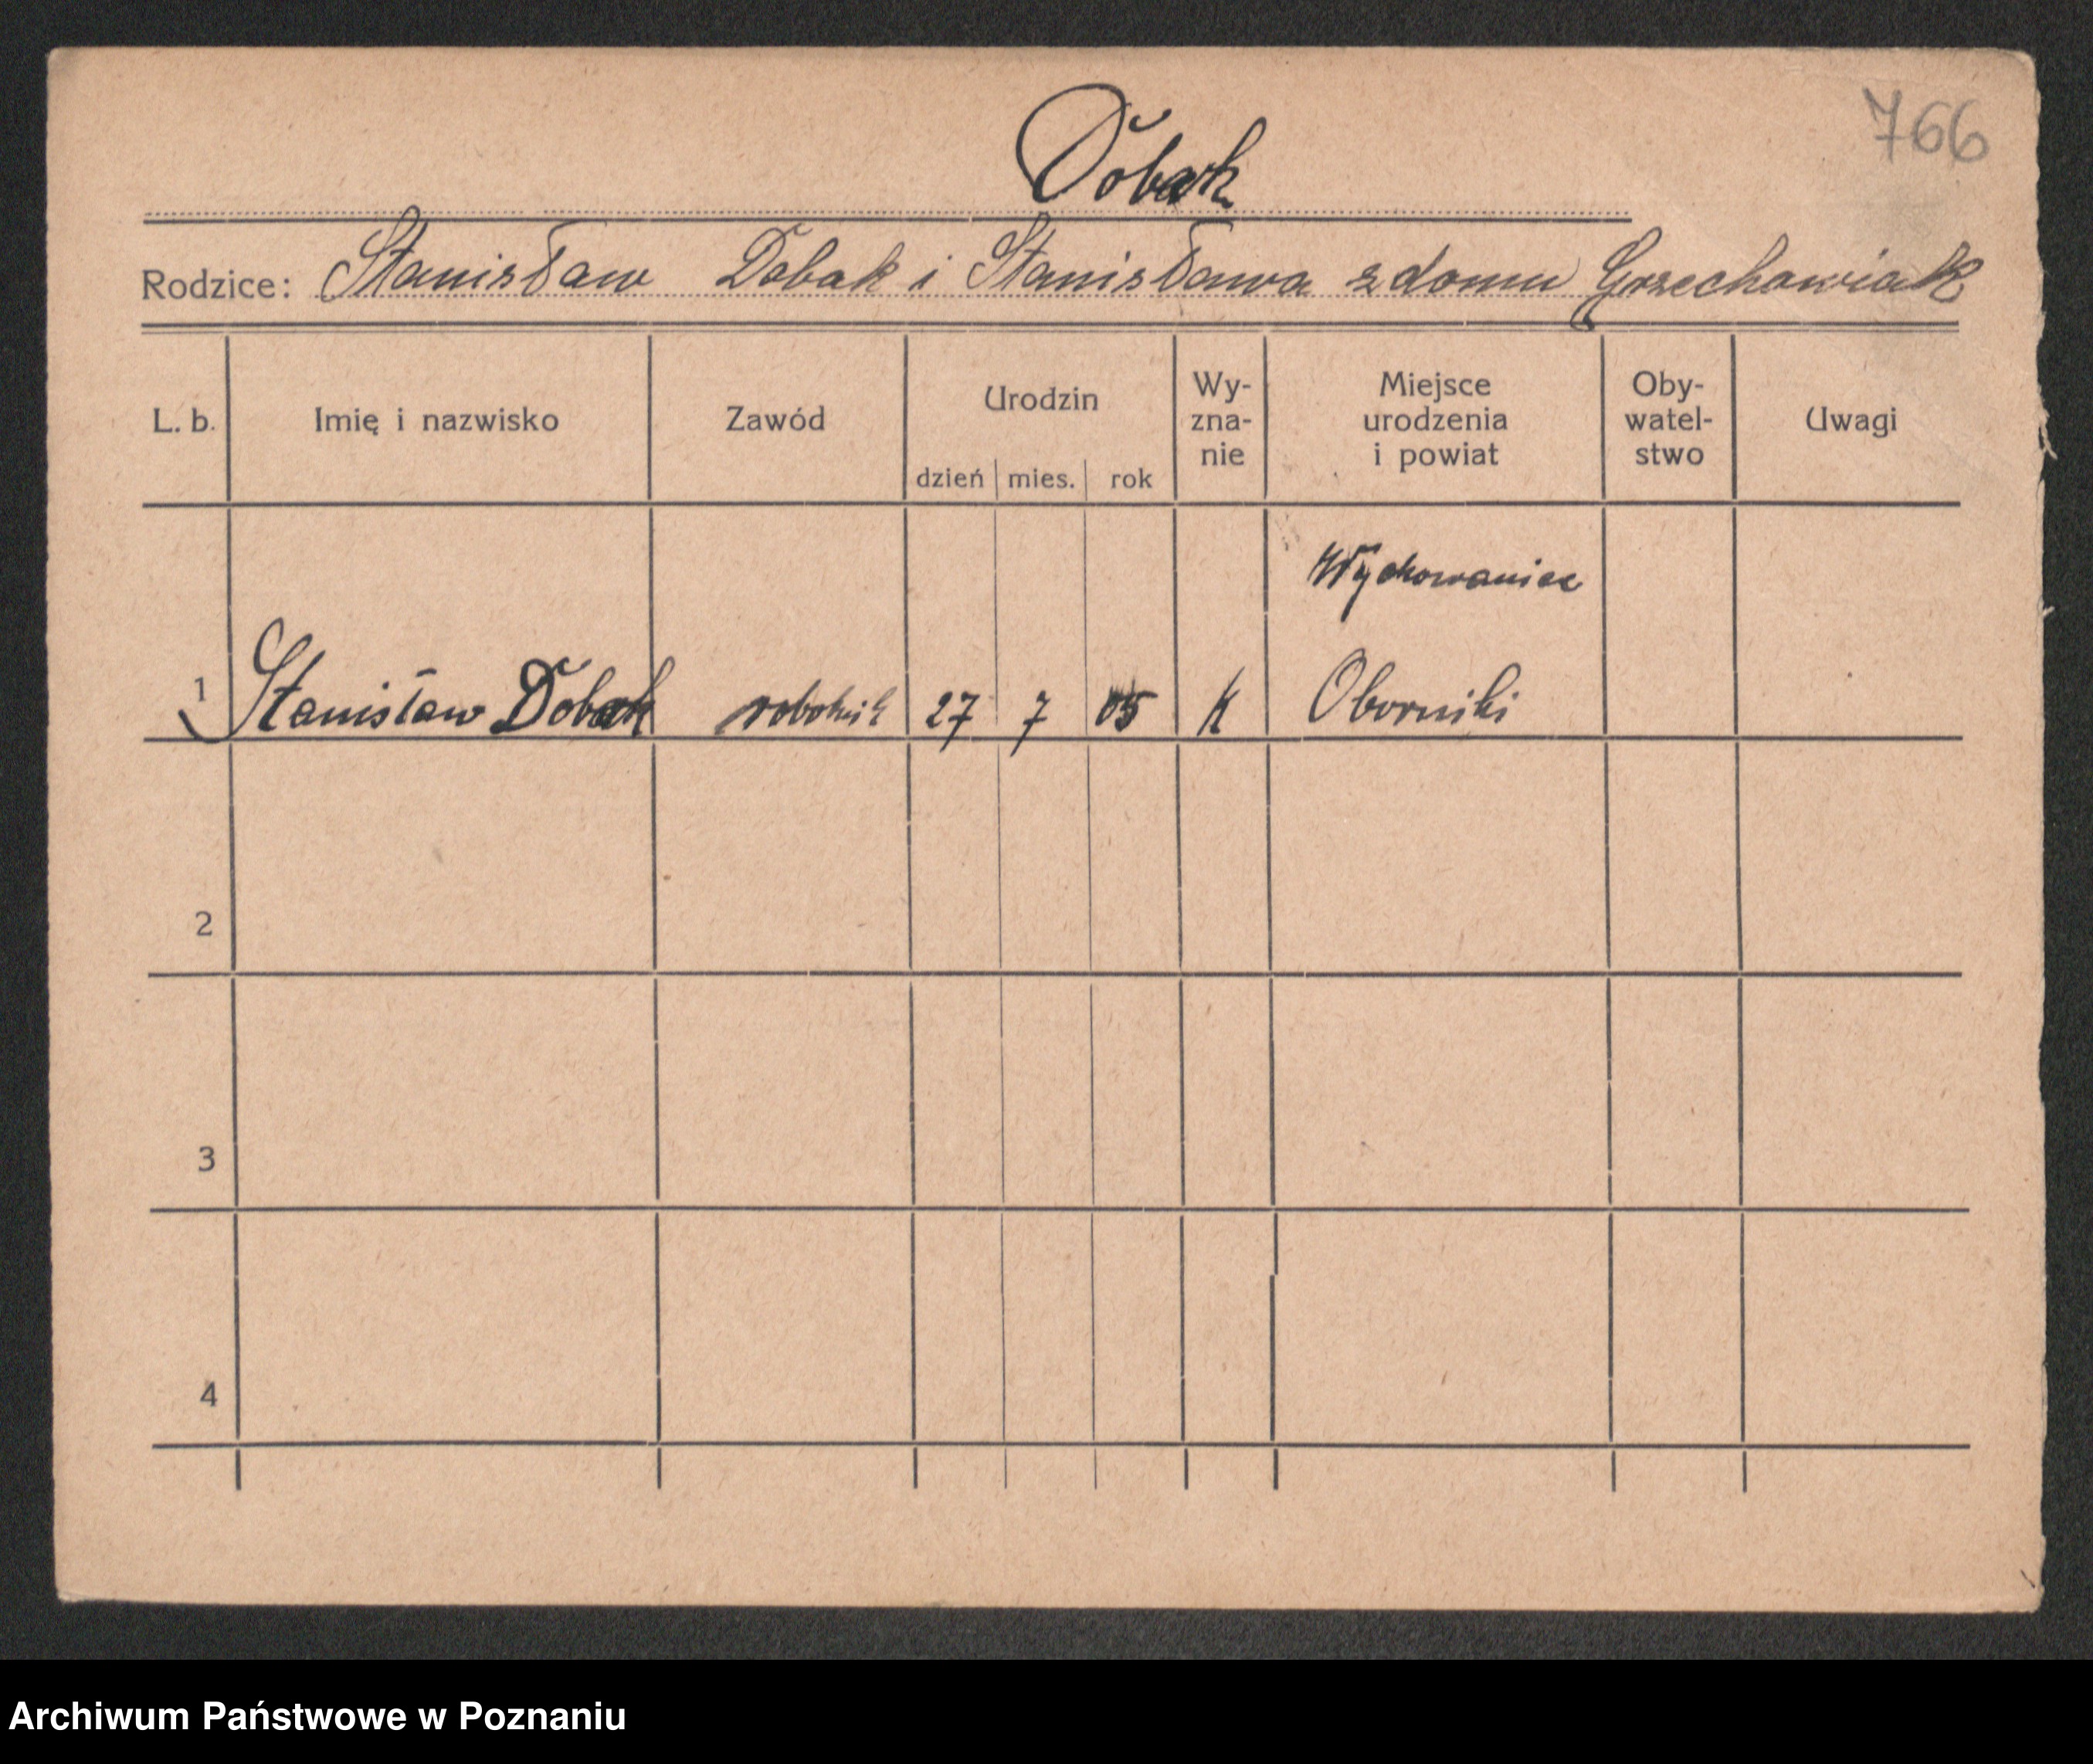 766
Dobak
Rodzice: Stanisław Dobak i Stanisława z domu Grzechowiak
L. b. Imię i nazwisko Zawód Urodzin dzień mies. rok Wy-zna-nie Miejsce urodzenia i powiat Oby-watel-stwo Uwagi
Wychowaniec
1 Stanisław Dobak robotnik 27 7 05 K Oborniki
2
3
4
Archiwum Państwowe w Poznaniu